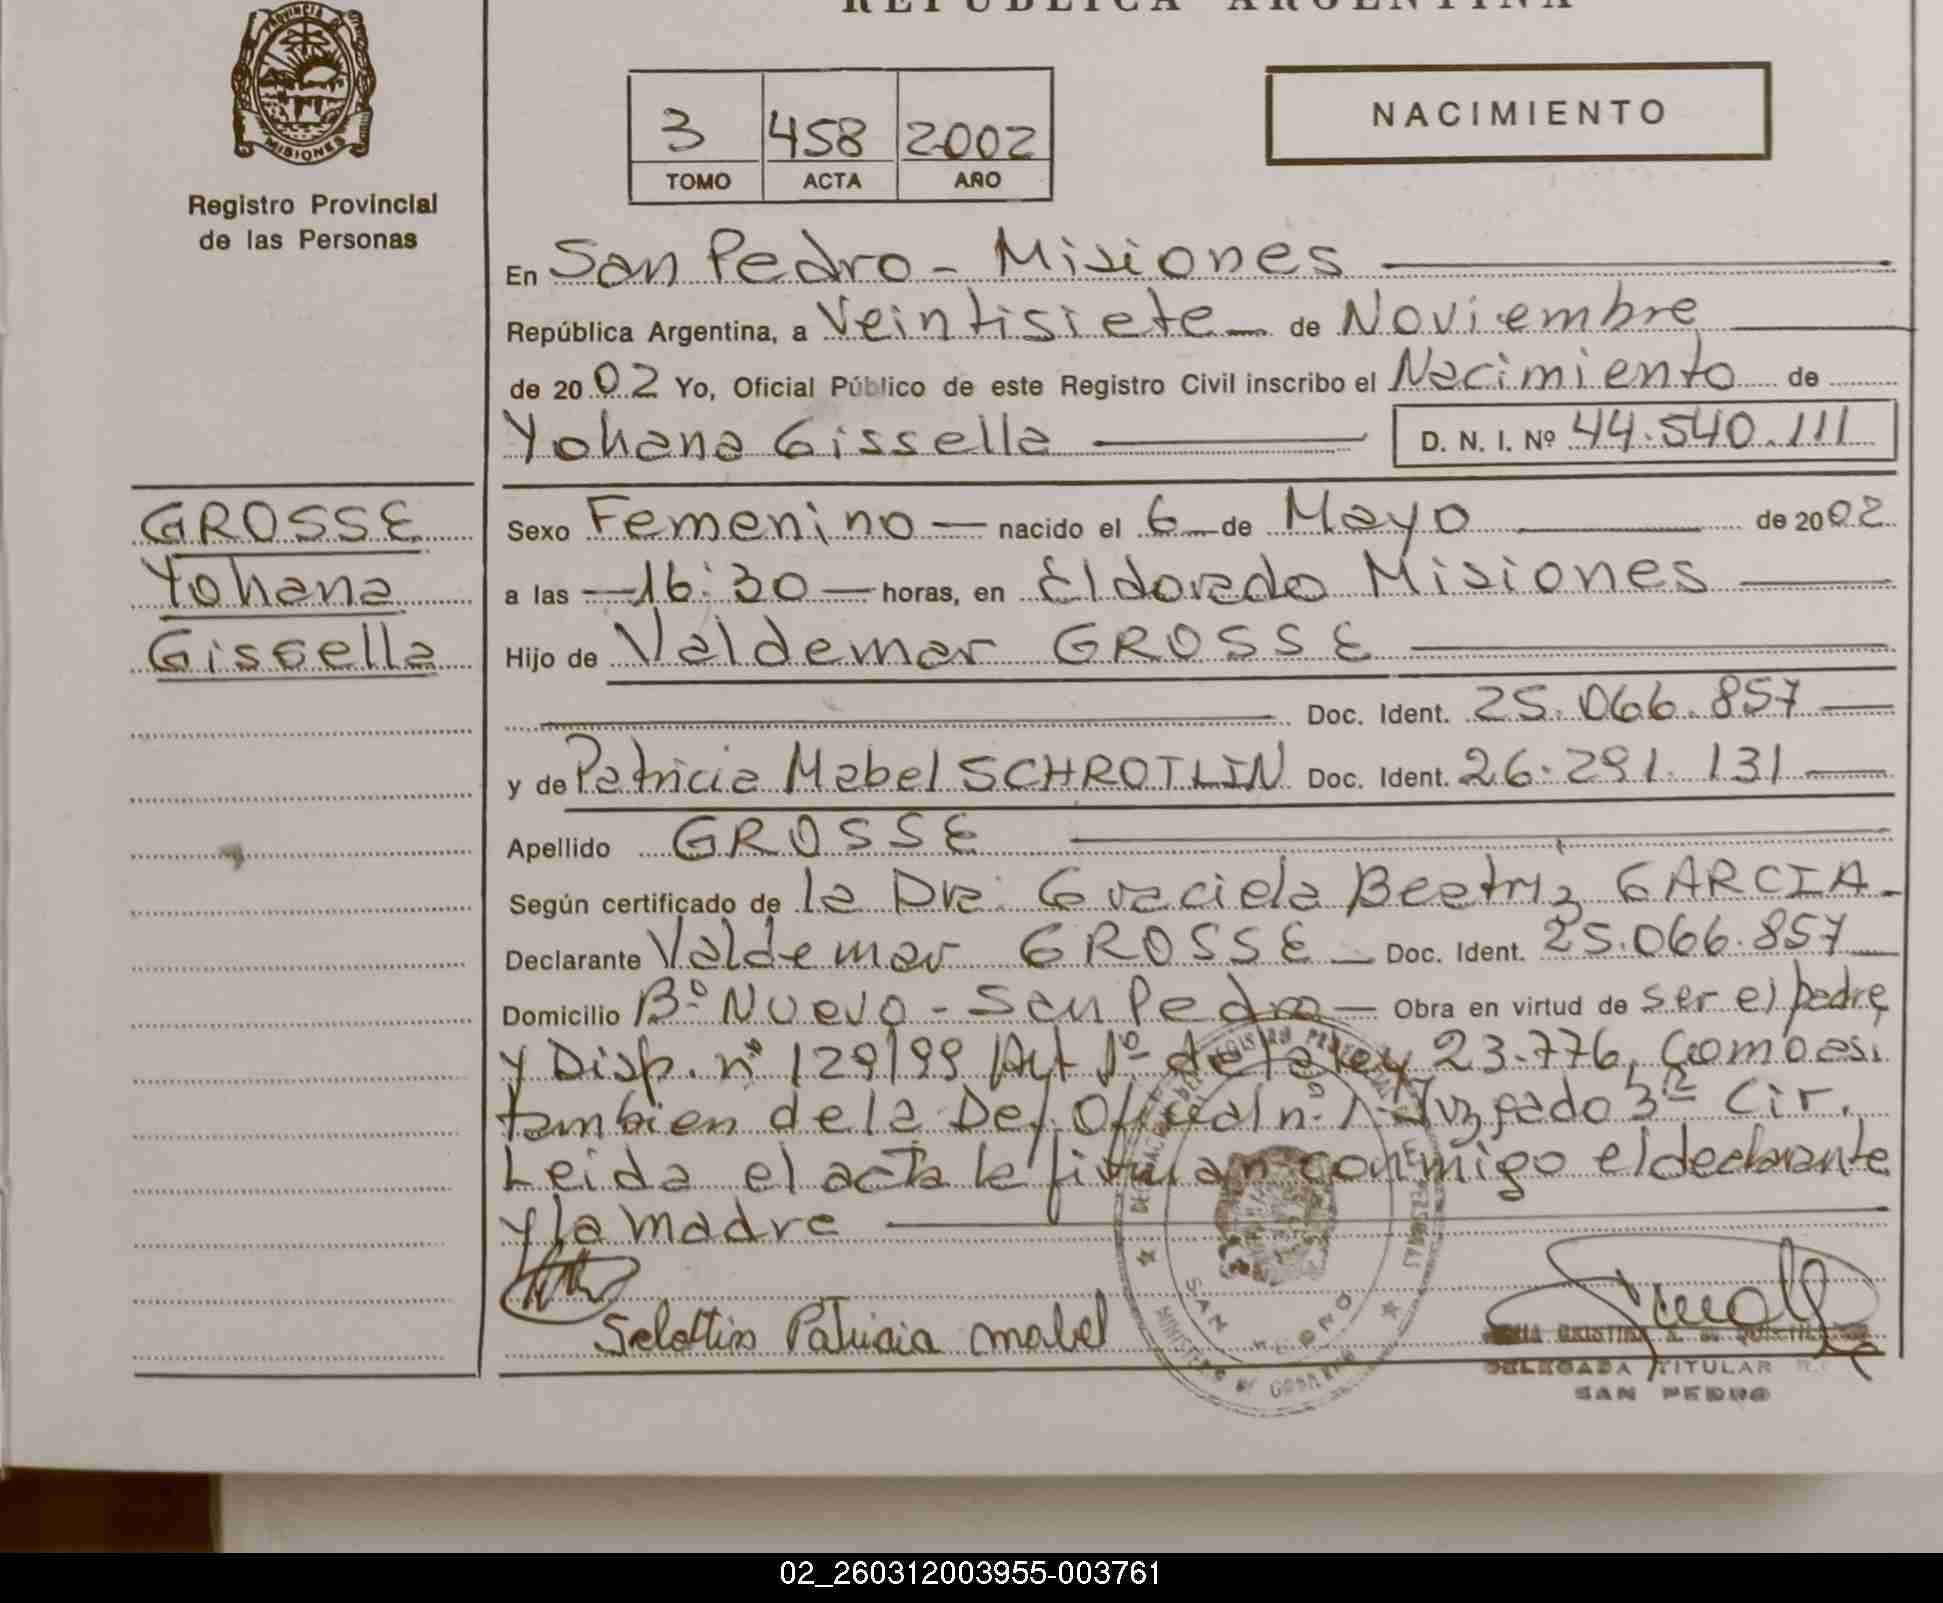 REPUBLICA ARGENTINA
MISIONES
Registro Provincial
de las Personas
3 458 2002
TOMO ACTA AÑO
NACIMIENTO
En San Pedro - Misiones
República Argentina, a Veintisiete de Noviembre
de 2002 Yo, Oficial Público de este Registro Civil inscribo el Nacimiento de
Yohana Gissella D. N. I. Nº 44.540.111
GROSSE
Yohana
Gissella
Sexo Femenino nacido el 6 de Mayo de 2002
a las 16:30 horas, en Eldorado Misiones
Hijo de Valdemar GROSSE
Doc. Ident. 25.066.857
y de Patricia Mabel SCHROTLIN Doc. Ident. 26.291.131
Apellido GROSSE
Según certificado de la Dra. Graciela Beatriz GARCIA
Declarante Valdemar GROSSE Doc. Ident. 25.066.857
Domicilio Bº Nuevo - San Pedro Obra en virtud de ser el padre
y Disp. nº 129/99 Art 1º de la ley 23.776, Como asi
tambien de la Def. Oficial nº 1 Juzgado 3ª Cir.
Leida el acta la firman conmigo el declarante
y la madre
Patricia mabel
SAN PEDRO
DELEGADA TITULAR
SAN PEDRO
02_260312003955-003761